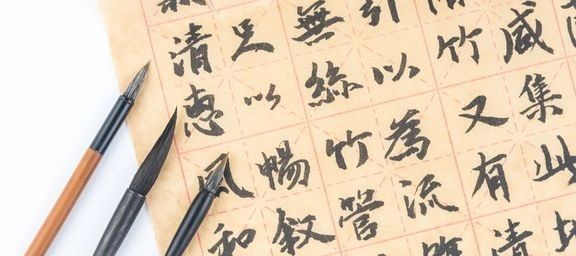 咸集此
竹又有清
引以為流
無絲竹管
足以暢叙
清惠風和